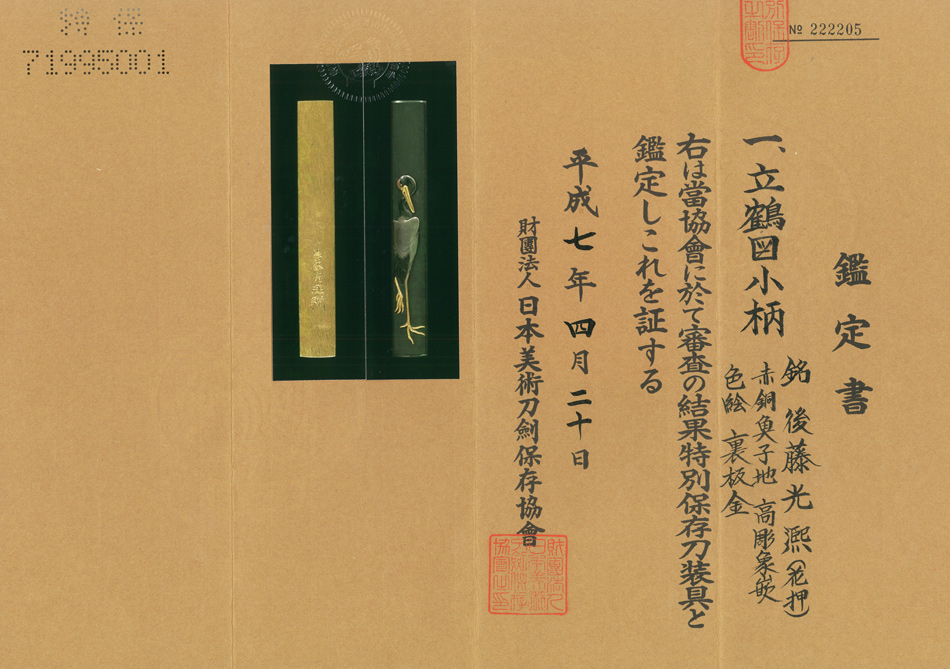 鑑定書
一、立鶴図小柄
銘 後藤光熈(花押)
赤銅魚子地 高彫象嵌
色絵 裏板金
右は當協會に於て審査の結果特別保存刀装具と
鑑定しこれを証する
平成七年四月二十日
財團法人日本美術刀劍保存協會
№ 222205
特保
71995001